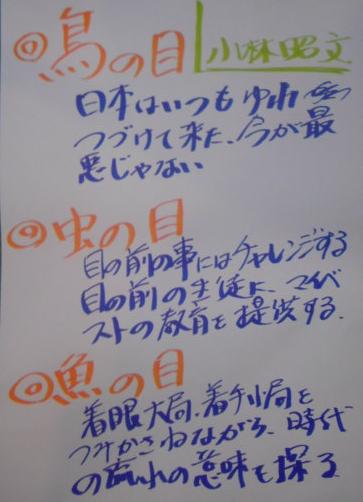 ◎鳥の目 小林昭文
日本はいつもゆれ
つづけて来た、今が最
悪じゃない
◎虫の目
目の前の事にはチャレンジする
目の前の生徒に、マイベ
ストの教育を提供する.
◎魚の目
着眼大局、着手小局を
つみかさねながら、時代
の流れの意味を探る